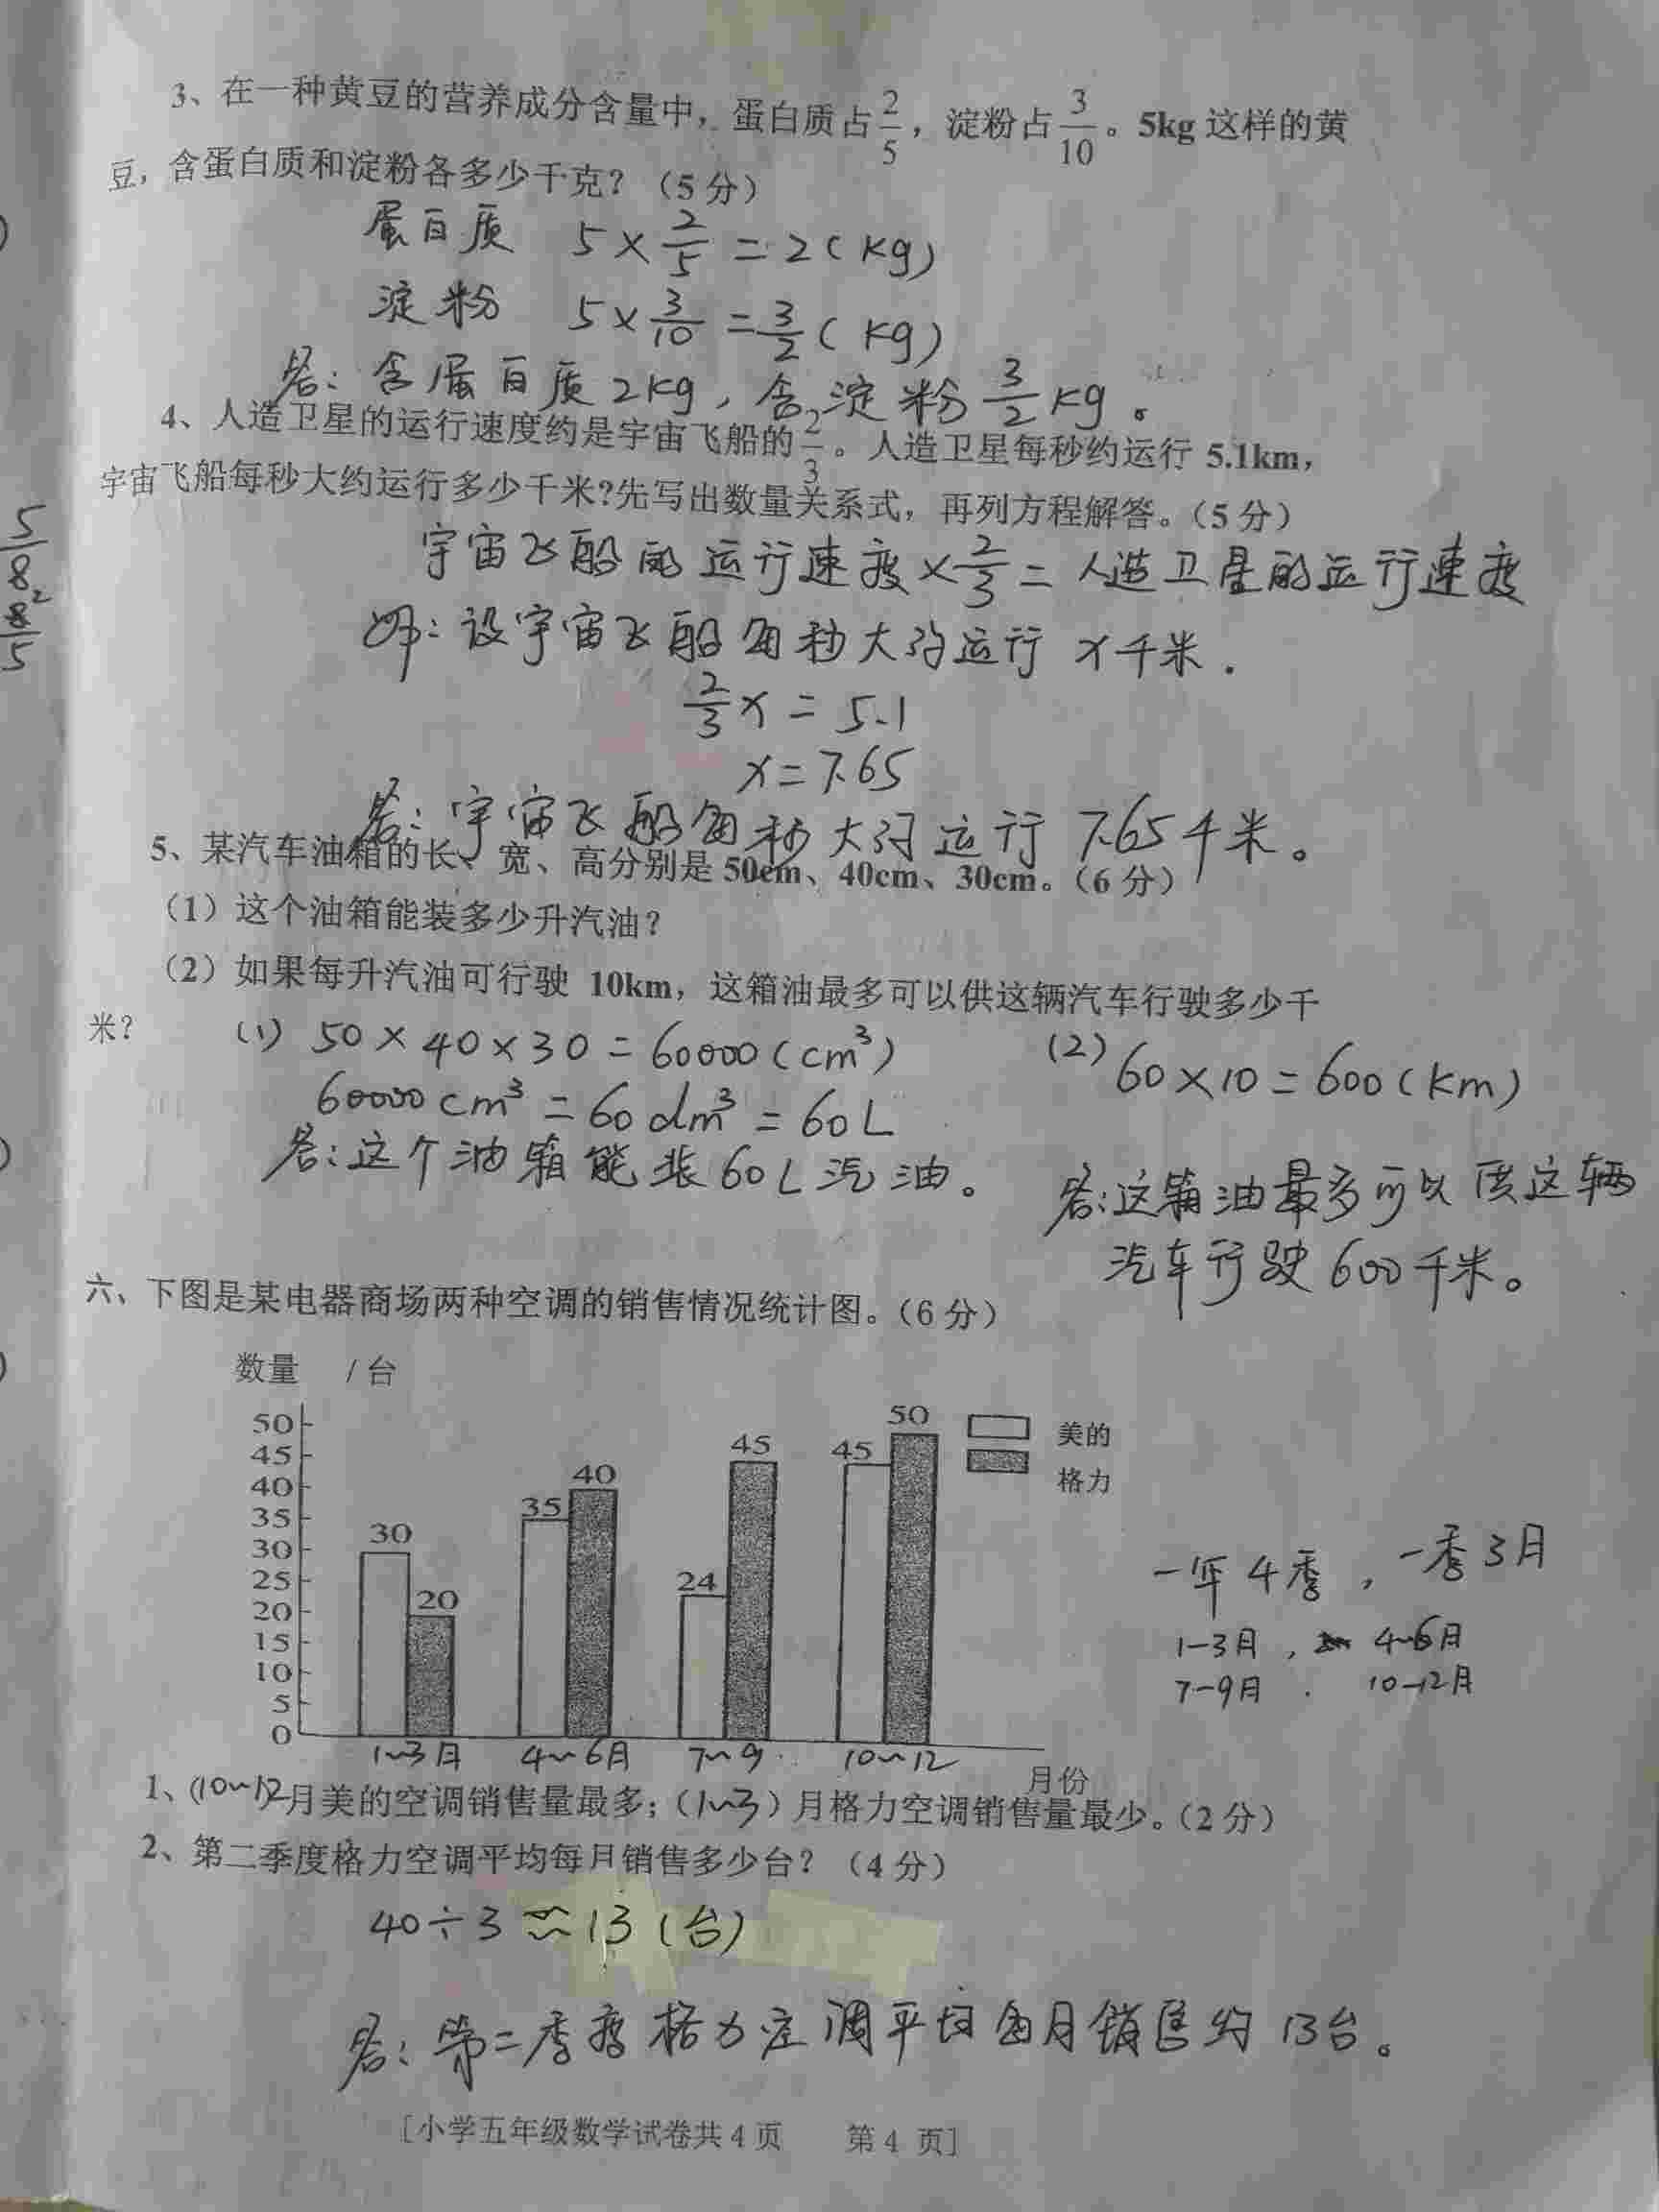 3、在一种黄豆的营养成分含量中，蛋白质占2/5，淀粉占3/10。5kg 这样的黄
豆，含蛋白质和淀粉各多少千克？（5 分）
蛋白质 5×2/5=2(kg)
淀粉 5×3/10=3/2(kg)
答：含蛋白质2kg，含淀粉3/2kg。
4、人造卫星的运行速度约是宇宙飞船的2/3。人造卫星每秒约运行 5.1km，
宇宙飞船每秒大约运行多少千米?先写出数量关系式，再列方程解答。（5 分）
宇宙飞船的运行速度×2/3=人造卫星的运行速度
解：设宇宙飞船每秒大约运行 x千米.
2/3x=5.1
x=7.65
答：宇宙飞船每秒大约运行 7.65千米。
5、某汽车油箱的长、宽、高分别是 50cm、40cm、30cm。（6 分）
（1）这个油箱能装多少升汽油？
（2）如果每升汽油可行驶 10km，这箱油最多可以供这辆汽车行驶多少千
米？
(1) 50×40×30=60000(cm³)
60000cm³=60dm³=60L
答：这个油箱能装60L汽油。
(2) 60×10=600(km)
答：这箱油最多可以供这辆
汽车行驶600千米。
5/8
8/5 2
六、下图是某电器商场两种空调的销售情况统计图。（6 分）
数量 /台
50
45
40
35
30
25
20
15
10
5
0
30 20 35 40 24 45 45 50
美的
格力
1~3月 4~6月 7~9 10~12
月份
一年4季，一季3月
1-3月，4-6月
7-9月. 10-12月
1、(10~12)月美的空调销售量最多；（1~3）月格力空调销售量最少。（2 分）
2、第二季度格力空调平均每月销售多少台？（4 分）
40÷3≈13(台)
答：第二季度格力空调平均每月销售约13台。
［小学五年级数学试卷共 4 页 第 4 页］